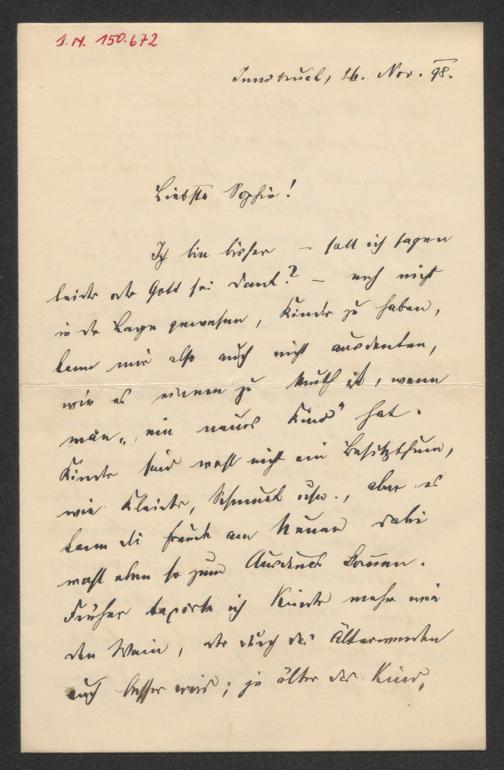 I.N. 150.672
Innsbruck, 26. Nov. 98.
Liebste Sophie!
Ich bin bisher – soll ich sagen
leider oder Gott sei Dank? – noch nicht
in der Lage gewesen, Kinder zu haben,
kann mir also auch nicht ausdenken,
wie es einem zu Muth ist, wenn
man „ein neues Kind" hat.
Kinder sind wohl nicht ein Besitzthum,
wie Kleider, Schmuck usw., aber es
kann die Freude am Neuen dabei
wohl eben so zum Ausdruck kommen.
Früher taxirte ich Kinder mehr wie
den Wein, der durch das Älterwerden
auch besser wird; je älter das Kind,